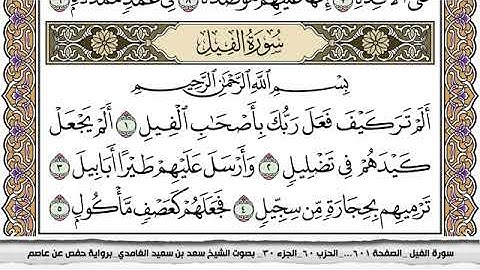 عَلَى ٱلْأَفْـِٔدَةِ ٧ إِنَّهَا عَلَيْهِم مُّؤْصَدَةٌ ٨ فِى عَمَدٍ مُّمَدَّدَةٍۭ ٩
سُورَةُ الفِيلِ
بِسْمِ ٱللَّهِ ٱلرَّحْمَٰنِ ٱلرَّحِيمِ
أَلَمْ تَرَ كَيْفَ فَعَلَ رَبُّكَ بِأَصْحَٰبِ ٱلْفِيلِ ١ أَلَمْ يَجْعَلْ
كَيْدَهُمْ فِى تَضْلِيلٍ ٢ وَأَرْسَلَ عَلَيْهِمْ طَيْرًا أَبَابِيلَ ٣
تَرْمِيهِم بِحِجَارَةٍ مِّن سِجِّيلٍ ٤ فَجَعَلَهُمْ كَعَصْفٍ مَّأْكُولٍۭ ٥
سورة الفيل _الصفحة ٦٠١ ..._ الحزب ٦٠ _الجزء ٣٠ _ بصوت الشيخ سعد بن سعيد الغامدي _برواية حفص عن عاصم